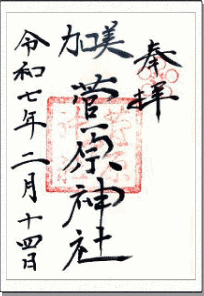 奉拝
加美
菅原神社
令和七年二月十四日